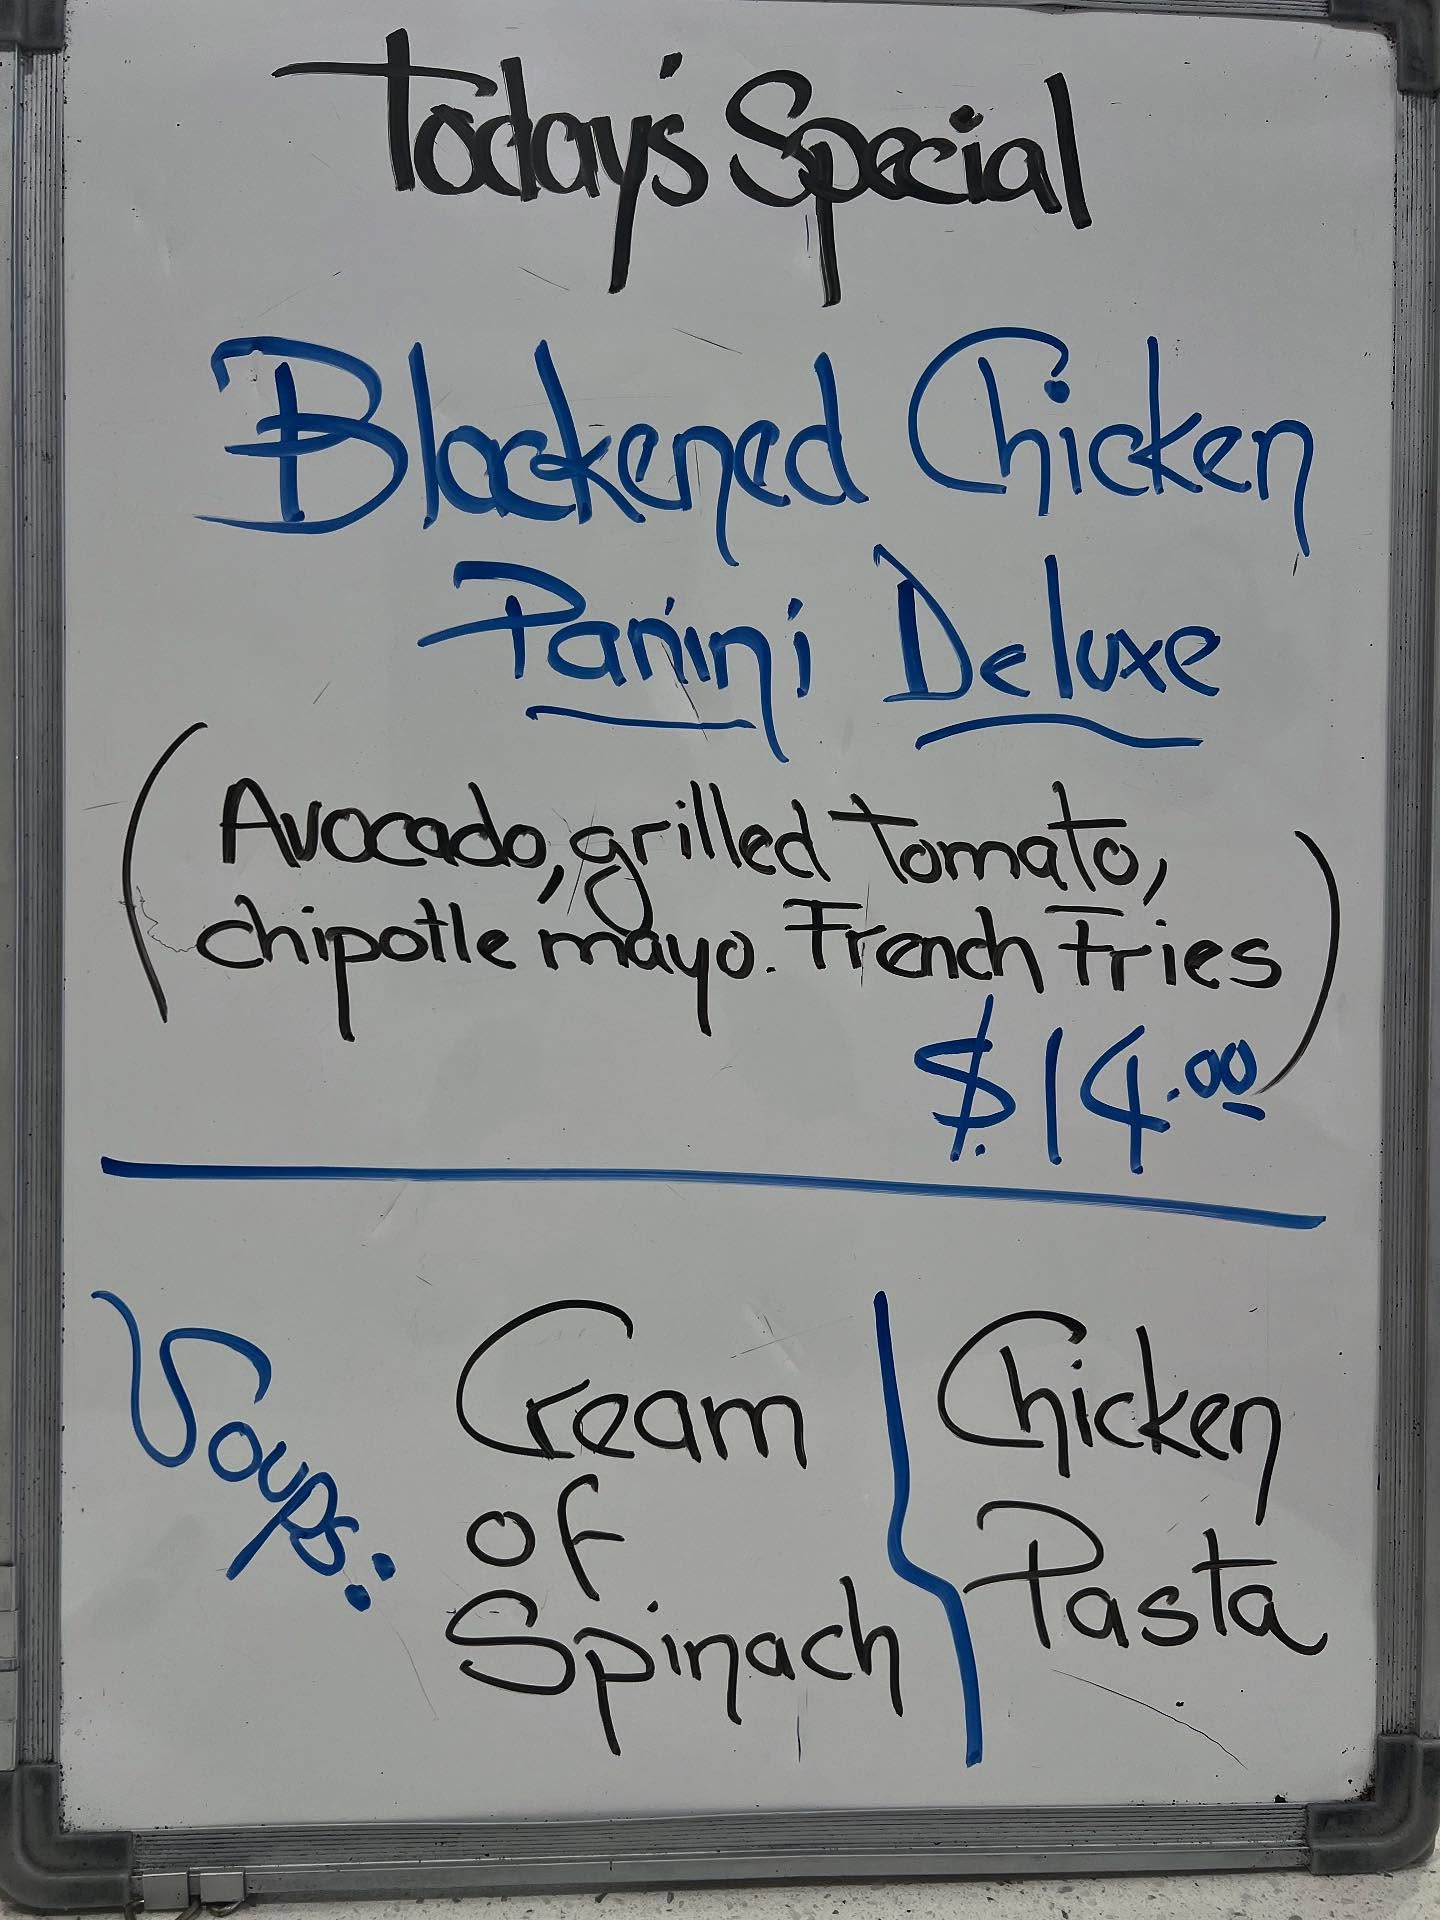 Today's Special
Blackened Chicken
Panini Deluxe
(Avocado, grilled tomato,
chipotle mayo. French Fries)
$14.00
Soups:
Cream
of
Spinach
Chicken
Pasta